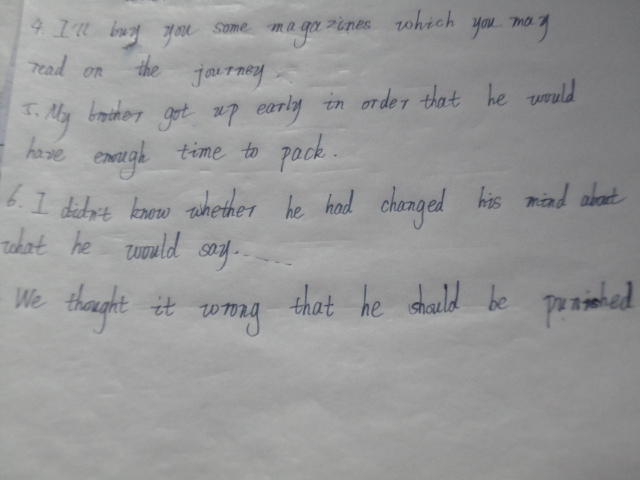 4. I'll buy you some magazines which you may
read on the journey.
5. My brother got up early in order that he would
have enough time to pack.
6. I didn't know whether he had changed his mind about
what he would say.
We thought it wrong that he should be punished